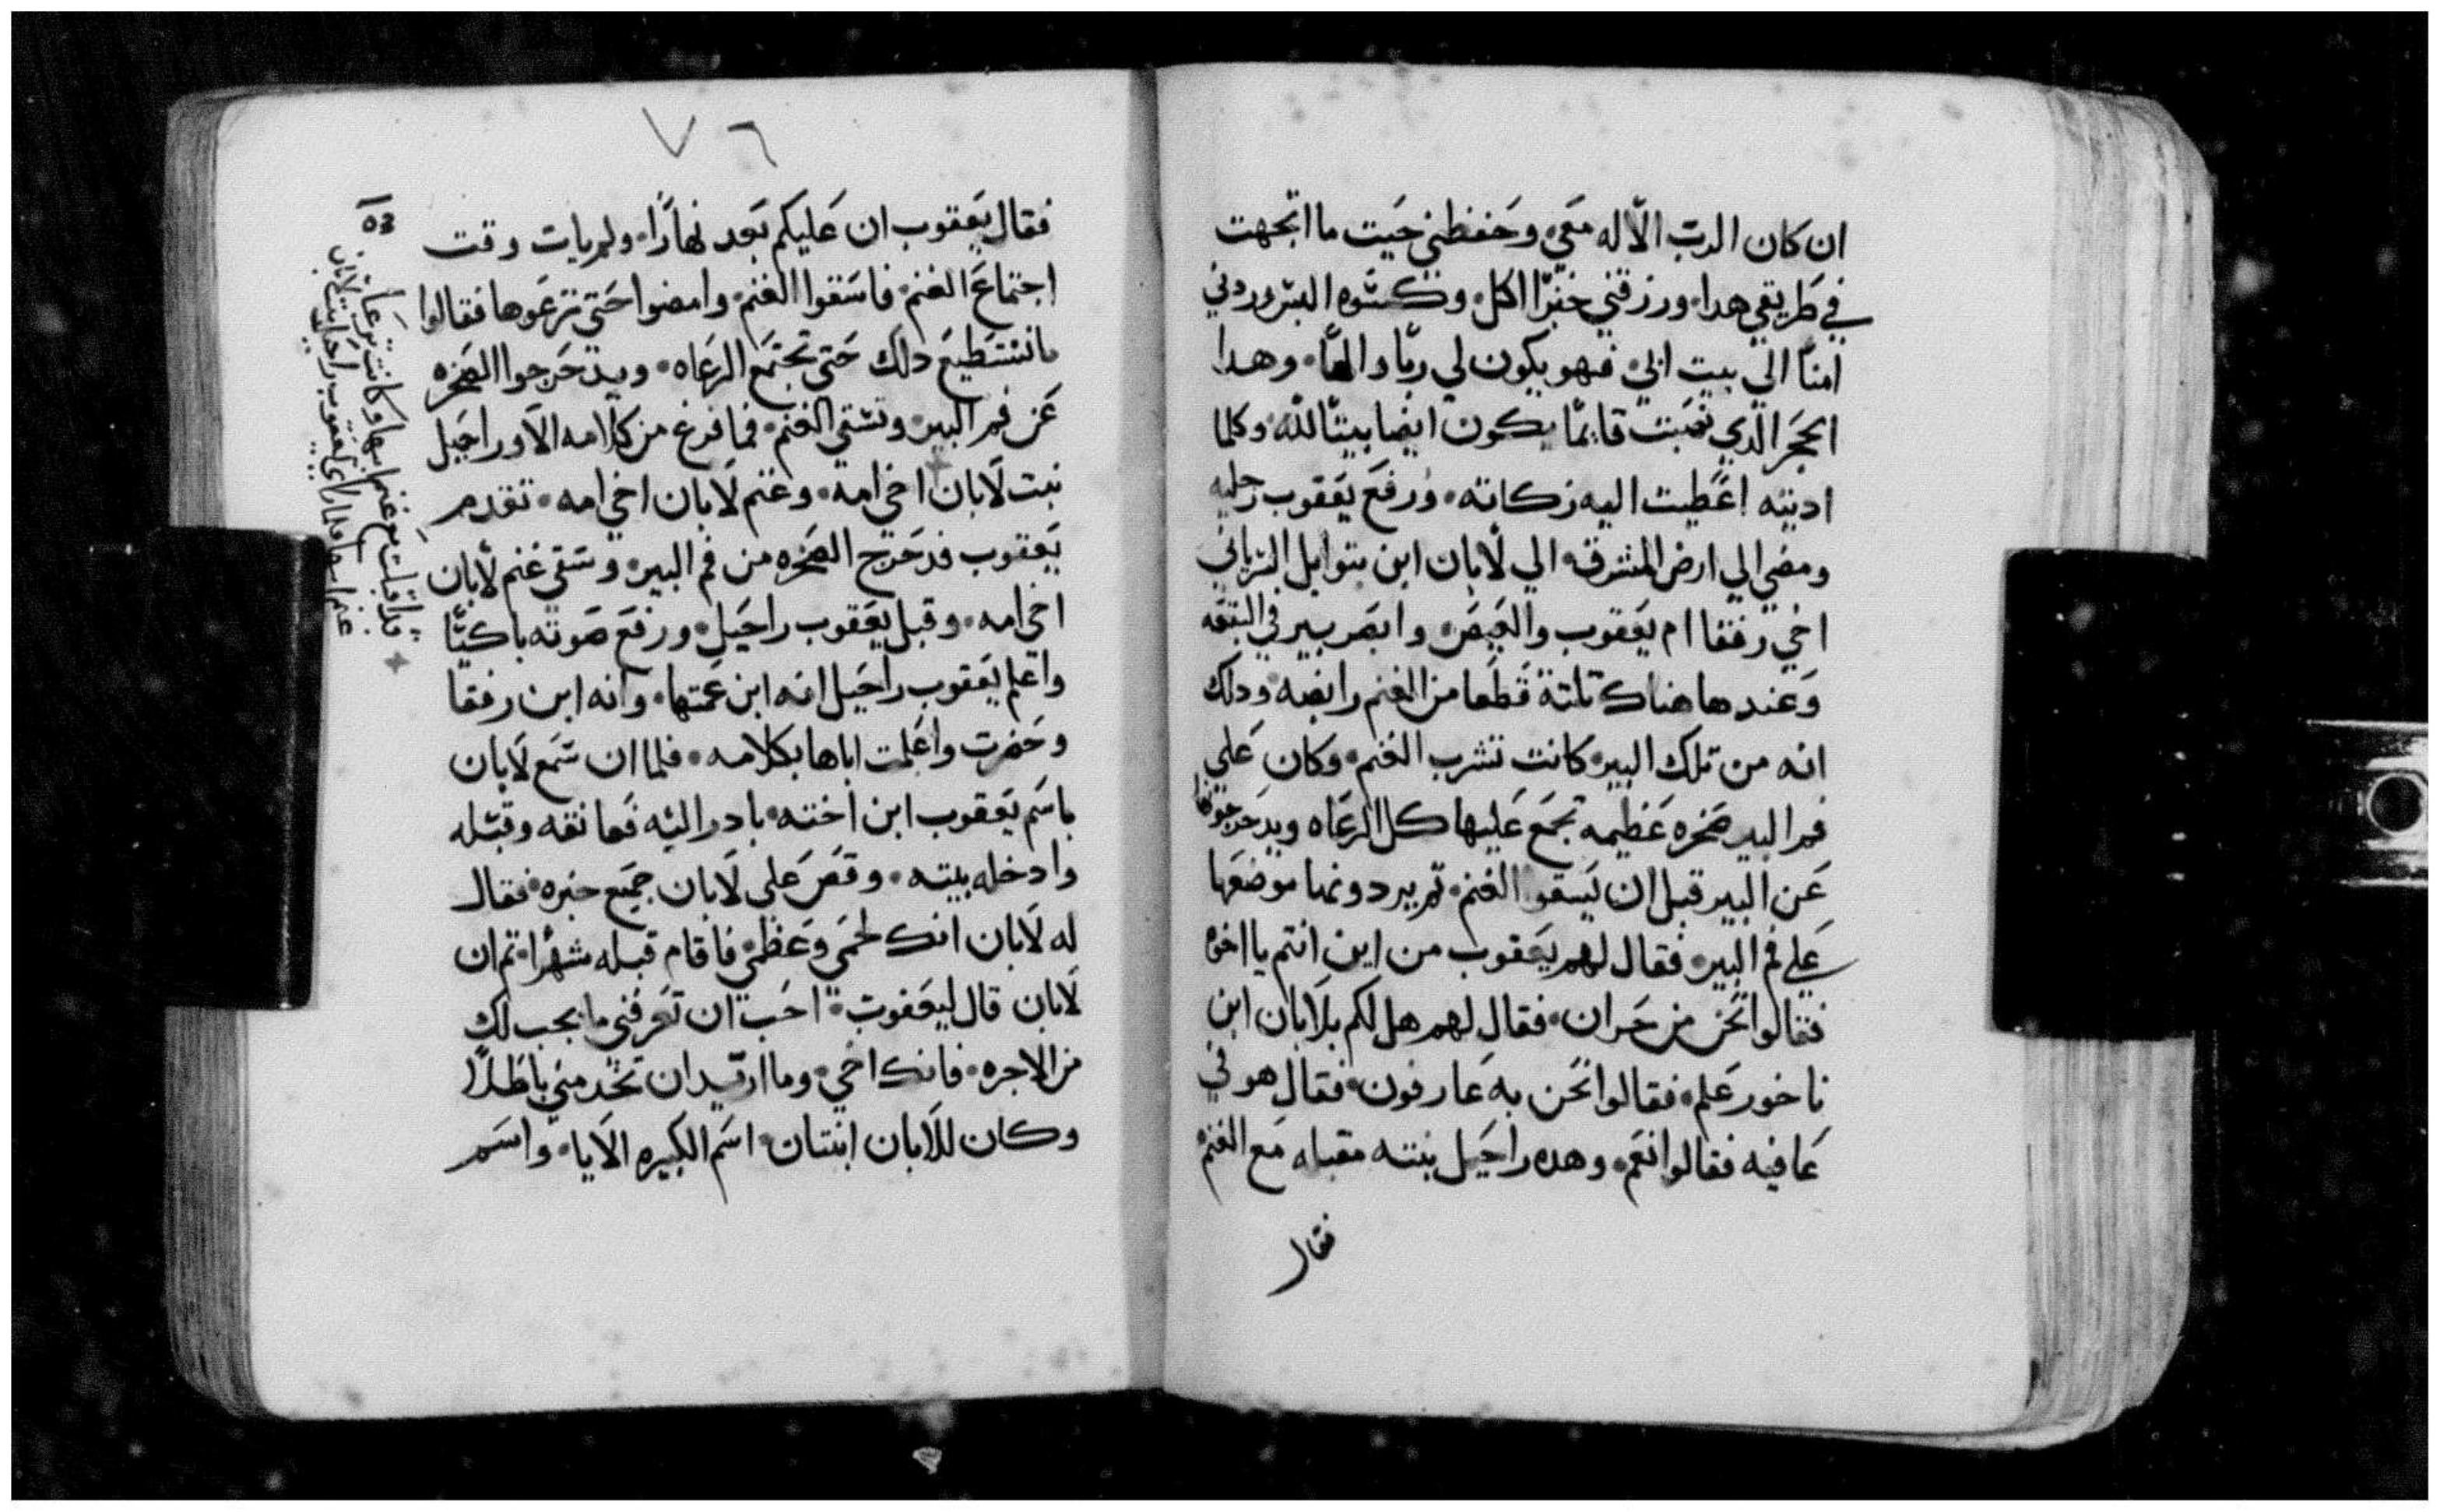 ان كان الرب الاله معي وحفظني حيت ما اتجهت
في طريقي هدا ورزقني خبزا اكل وكسوه البس وردني
امنا الي بيت ابي فهو يكون لي ربا والها وهدا
الحجر الدي نصبت قايما يكون ايضا بيتا لله وكلما
ادنيته اعطيت اليه زكاته ورفع يعقوب رجليه
ومضي الي ارض المشرق الي لابان ابن بتوايل السرياني
اخي رفقا ام يعقوب والعيص وابصر بير في البقعه
وعندها هناك تلتة قطعا من الغنم رابضه ودلك
انه من تلك البير كانت تشرب الغنم وكان علي
فم البير صخره عظيمه تجمع عليها كل الرعاه ويدحرجونها
عن البير قبل ان يسقوا الغنم تم يردونها موضعها
علي فم البير فقال لهم يعقوب من اين انتم يا اخوه
فقالوا نحن من حران فقال لهم هل لكم بلابان ابن
ناخور علم فقالوا نحن به عارفون فقال هو في
عافيه فقالوا نعم وهده راحيل بنته مقبله مع الغنم
فقال
٧٦
53
فقال يعقوب ان عليكم بعد نهارا ولم يات وقت
اجتماع الغنم فاسقوا الغنم وامضوا حتي ترعوها فقالوا
ما نستطيع دلك حتي تجتمع الرعاه ويدحرجوا الصخره
عن فم البير ونسقي الغنم فما فرغ من كلامه الا وراحيل
بنت لابان اخي امه وغنم لابان اخي امه تقدم
يعقوب فدحرج الصخره من فم البير وسقي غنم لابان
اخي امه وقبل يعقوب راحيل ورفع صوته باكيا
واعلم يعقوب راحيل انه ابن عمتها وانه ابن رفقا
وحضرت واعلمت اباها بكلامه فلما ان سمع لابان
باسم يعقوب ابن اخته بادر اليه فعانقه وقبله
وادخله بيته وقص علي لابان جميع خبره فقال
له لابان انك لحمي وعظمي فاقام قبله شهرا تم ان
لابان قال ليعقوب احب ان تعرفني ما يجب لك
من الاجره فانك اخي وما اريد ان تخدمني باطلا
وكان للابان ابنتان اسم الكبيره الايا واسم
قد اقبلت مع غنم ابيها وكانت ترعا
غنم ابيها فلما راي يعقوب راحيل بنت لابان